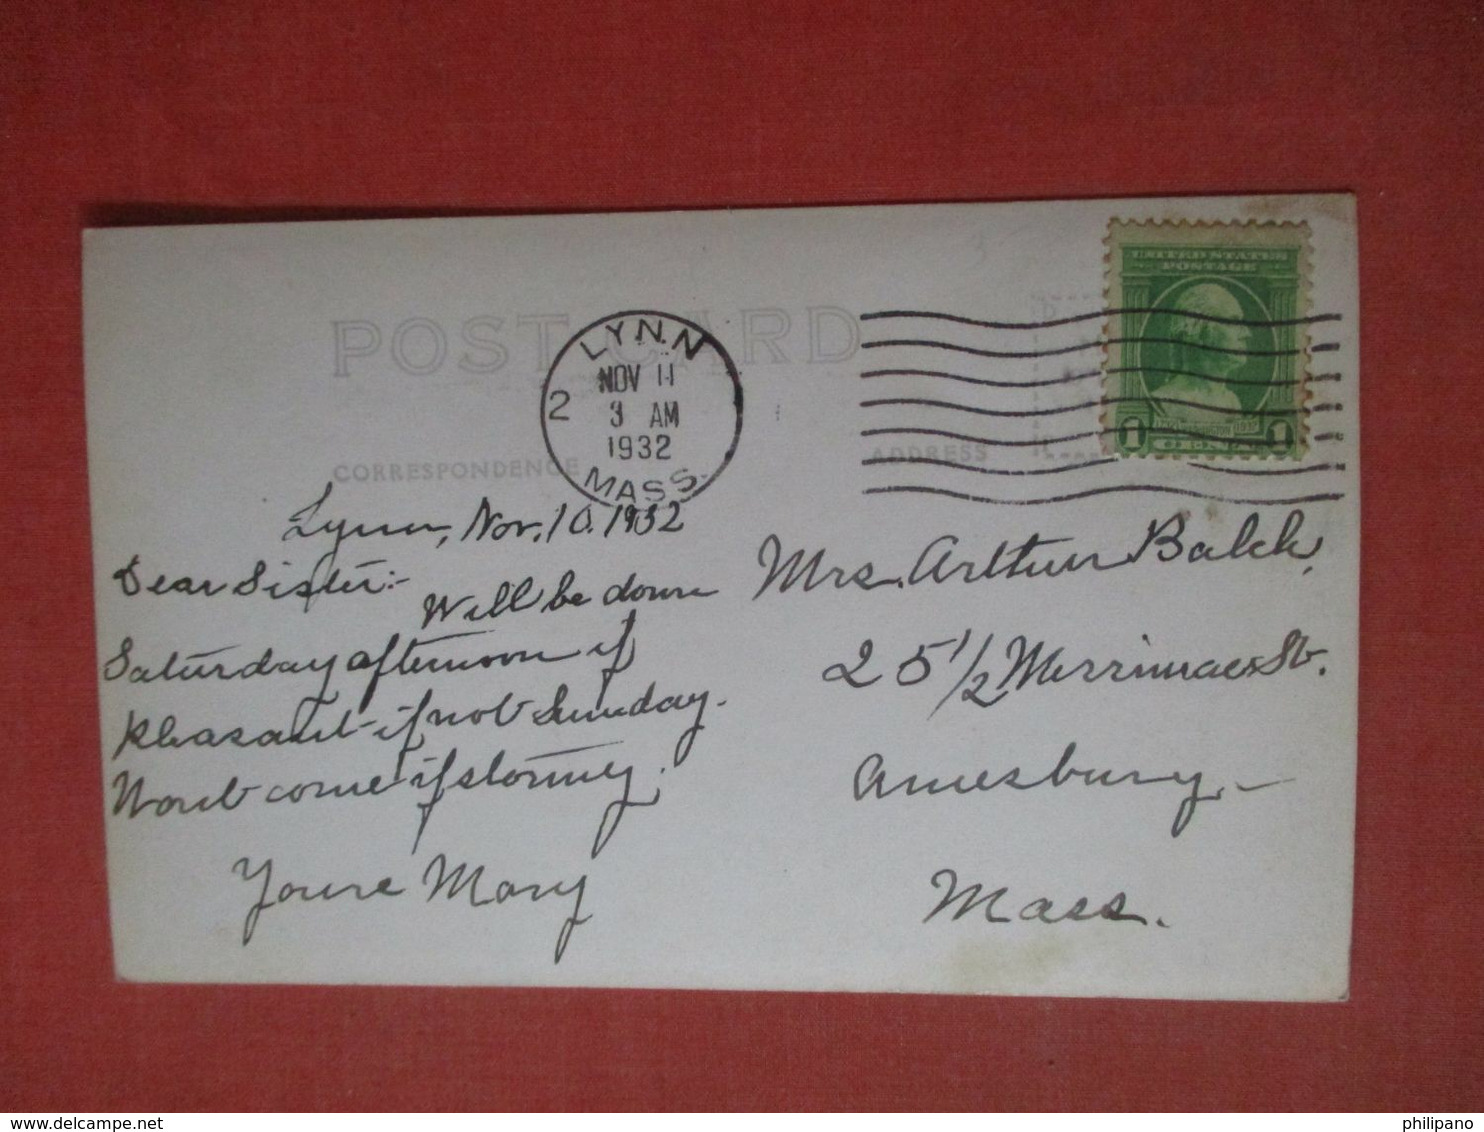 POST CARD
LYNN
NOV 11
3 AM
1932
MASS.
2
UNITED STATES
POSTAGE
1 CENT 1
CORRESPONDENCE
ADDRESS
Lynn, Nov. 10. 1932
Dear Sister:-
Will be down
Saturday afternoon if
pleasant if not Sunday.
Wont come if stormy.
Yours Mary
Mrs. Arthur Balch,
25 1/2 Merrimac St.
Amesbury -
Mass.
philipano
delcampe.net